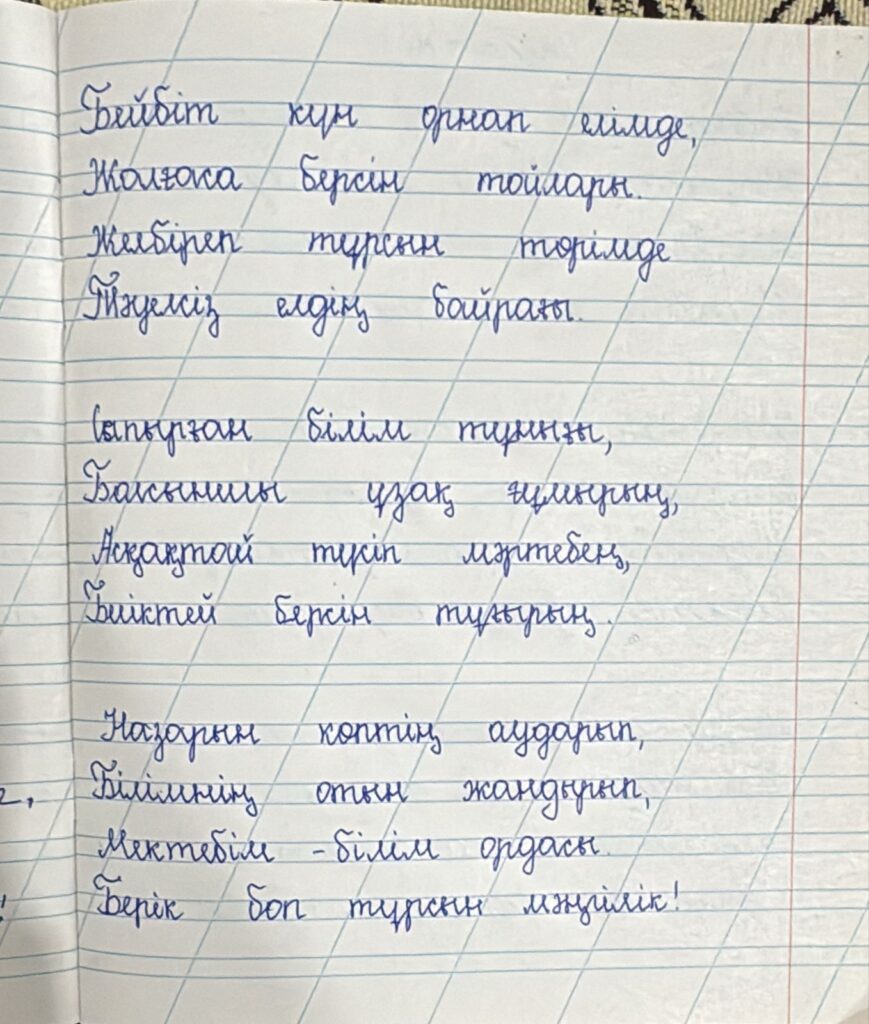 Бейбіт күн орнап елімде,
Жалғаса берсін тойлары.
Желбіреп тұрсын төрімде
Тәуелсіз елдің байрағы.
Сапырған білім тұнығы,
Баянды ұзақ ғұмырың,
Асқақтай түсіп мәртебең,
Биіктей берсін тұғырың.
Назарын көптің аударып,
Білімнің отын жандырып,
Мектебім - білім ордасы.
Берік боп тұрсын мәңгілік!